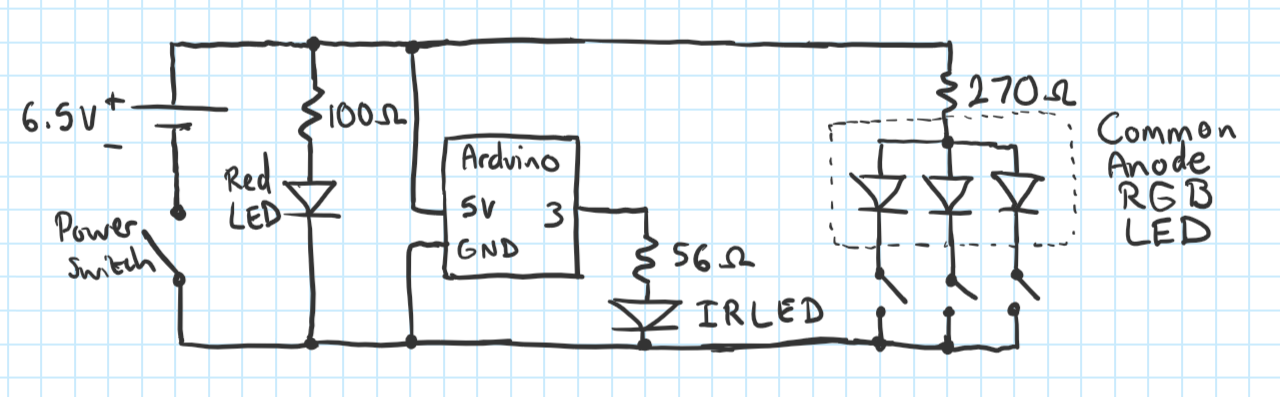 6.5V
+
−
Power
Switch
100Ω
Red
LED
Arduino
5V
3
GND
56Ω
IRLED
270Ω
Common
Anode
RGB
LED